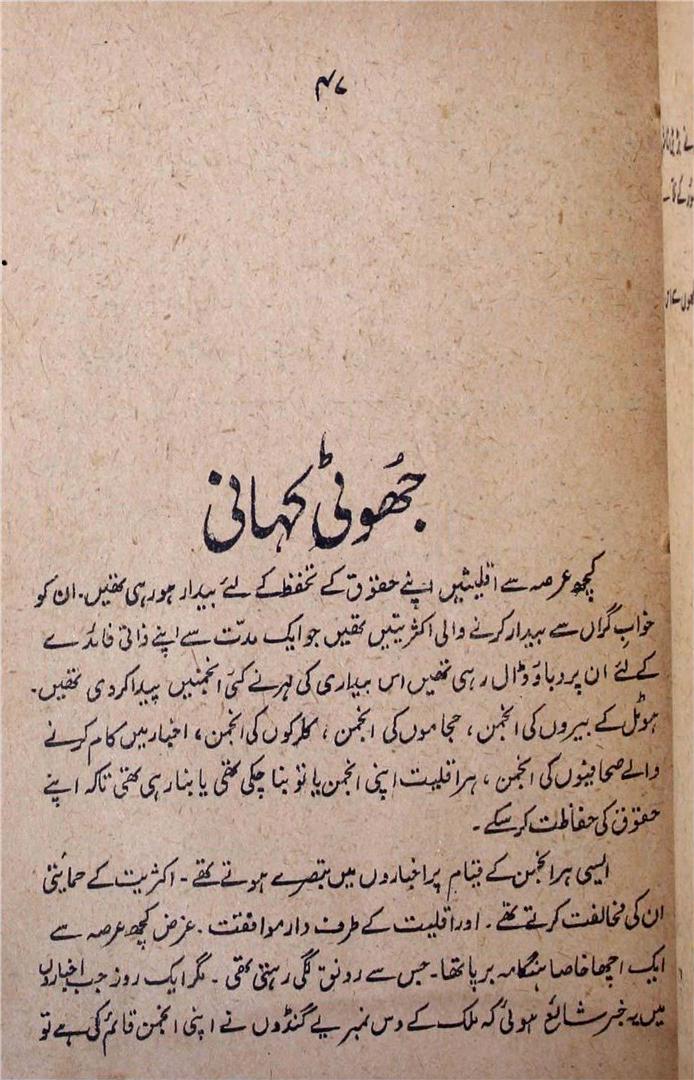 ۴۷
جھُوٹی کہانی
کچھ عرصہ سے اقلیتیں اپنے حقوق کے تحفظ کے لئے بیدار ہو رہی تھیں۔ ان کو
خوابِ گراں سے بیدار کرنے والی اکثریتیں تھیں جو ایک مدّت سے اپنے ذاتی فائدے
کے لئے ان پر دباؤ ڈال رہی تھیں اس بیداری کی لہر نے کئی انجمنیں پیدا کر دی تھیں۔
ہوٹل کے بیروں کی انجمن، حجاموں کی انجمن، کلرکوں کی انجمن، اخبار میں کام کرنے
والے صحافیوں کی انجمن، ہر اقلیت اپنی انجمن یا تو بنا چکی تھی یا بنا رہی تھی تاکہ اپنے
حقوق کی حفاظت کر سکے۔
ایسی ہر انجمن کے قیام پر اخباروں میں تبصرے ہوتے تھے۔ اکثریت کے حمائتی
ان کی مخالفت کرتے تھے۔ اور اقلیت کے طرف دار موافقت۔ غرض کچھ عرصہ سے
ایک اچھا خاصا ہنگامہ برپا تھا۔ جس سے رونق لگی رہتی تھی۔ مگر ایک روز جب اخباروں
میں یہ خبر شائع ہوئی کہ ملک کے دس نمبر یے گنڈوں نے اپنی انجمن قائم کی ہے تو